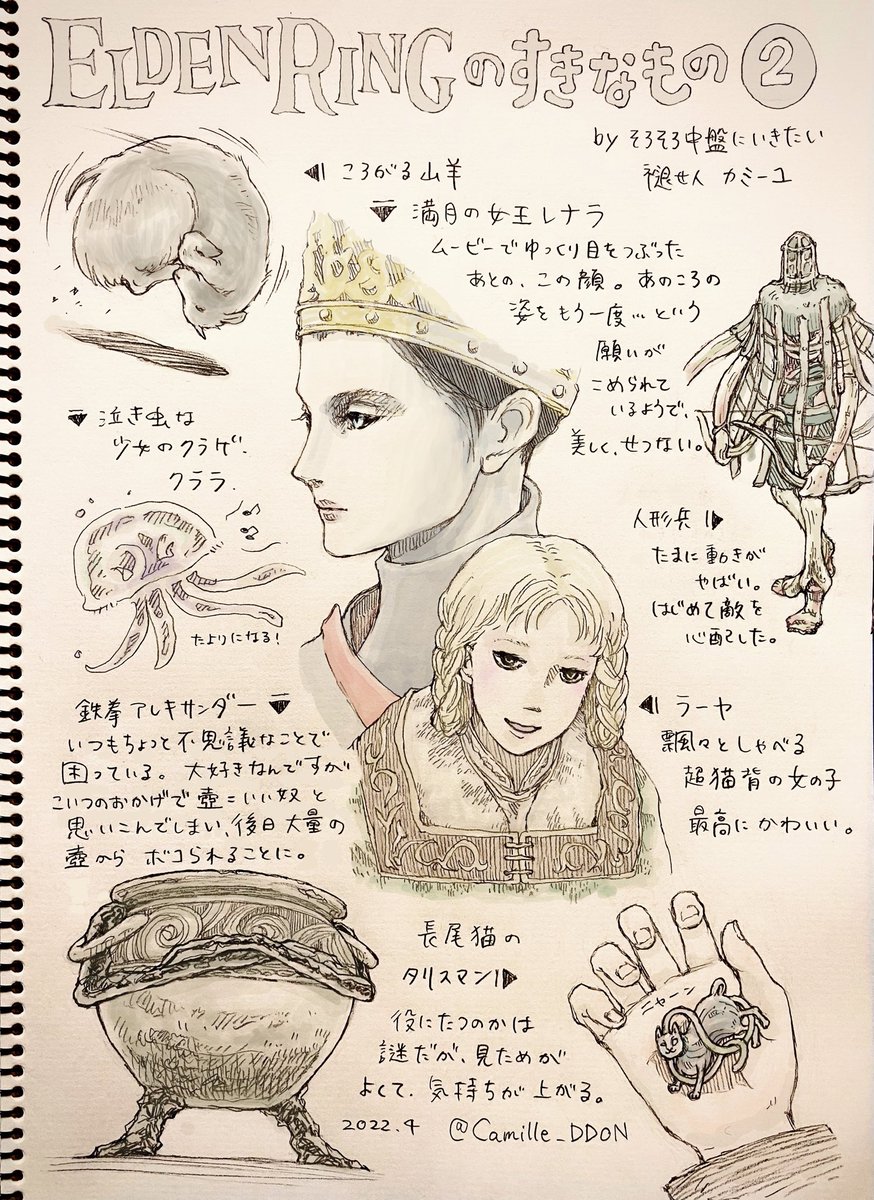 ELDEN RINGのすきなもの②
by そろそろ中盤にいきたい
褪せ人 カミーユ
ころがる山羊
満月の女王レナラ
ムービーでゆっくり目をつぶった
あとの、この顔。あのころの
姿をもう一度…という
願いが
こめられて
いるようで、
美しく、せつない。
泣き虫な
少女のクラゲ、
クララ.
たよりになる!
人形兵
たまに動きが
やばい。
はじめて敵を
心配した。
鉄拳アレキサンダー
いつもちょっと不思議なことで
困っている。大好きなんですが
こいつのおかげで壺=いい奴と
思いこんでしまい、後日大量の
壺から ボコられることに。
ラーヤ
飄々としゃべる
超猫背の女の子
最高にかわいい。
長尾猫の
タリスマン
役にたつのかは
謎だが、見ためが
よくて、気持ちが上がる。
ニャーン
2022.4 @Camille_DDON